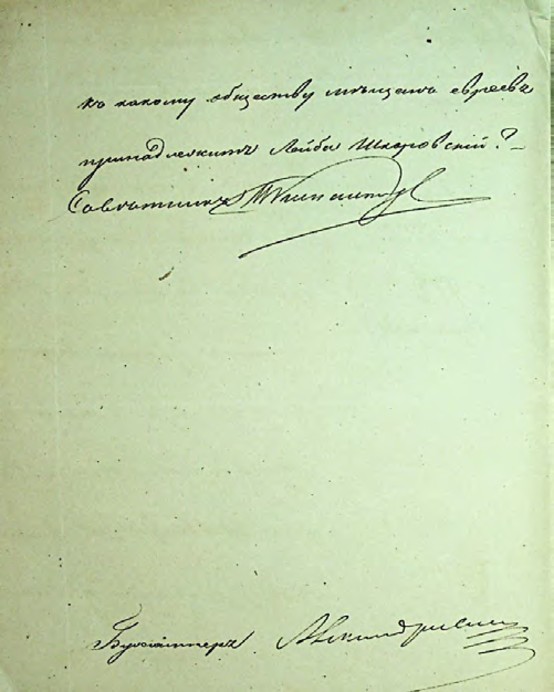 къ какому обществу мѣщанъ евреевъ
принадлежитъ Лейба Шкаровскій?
Совѣтникъ
Бухгалтеръ